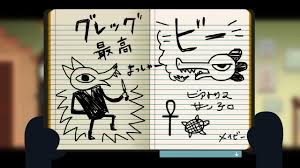 グレッグ
最高
よっしゃー
ビー
ビアトリス
サンテロ
メイビー